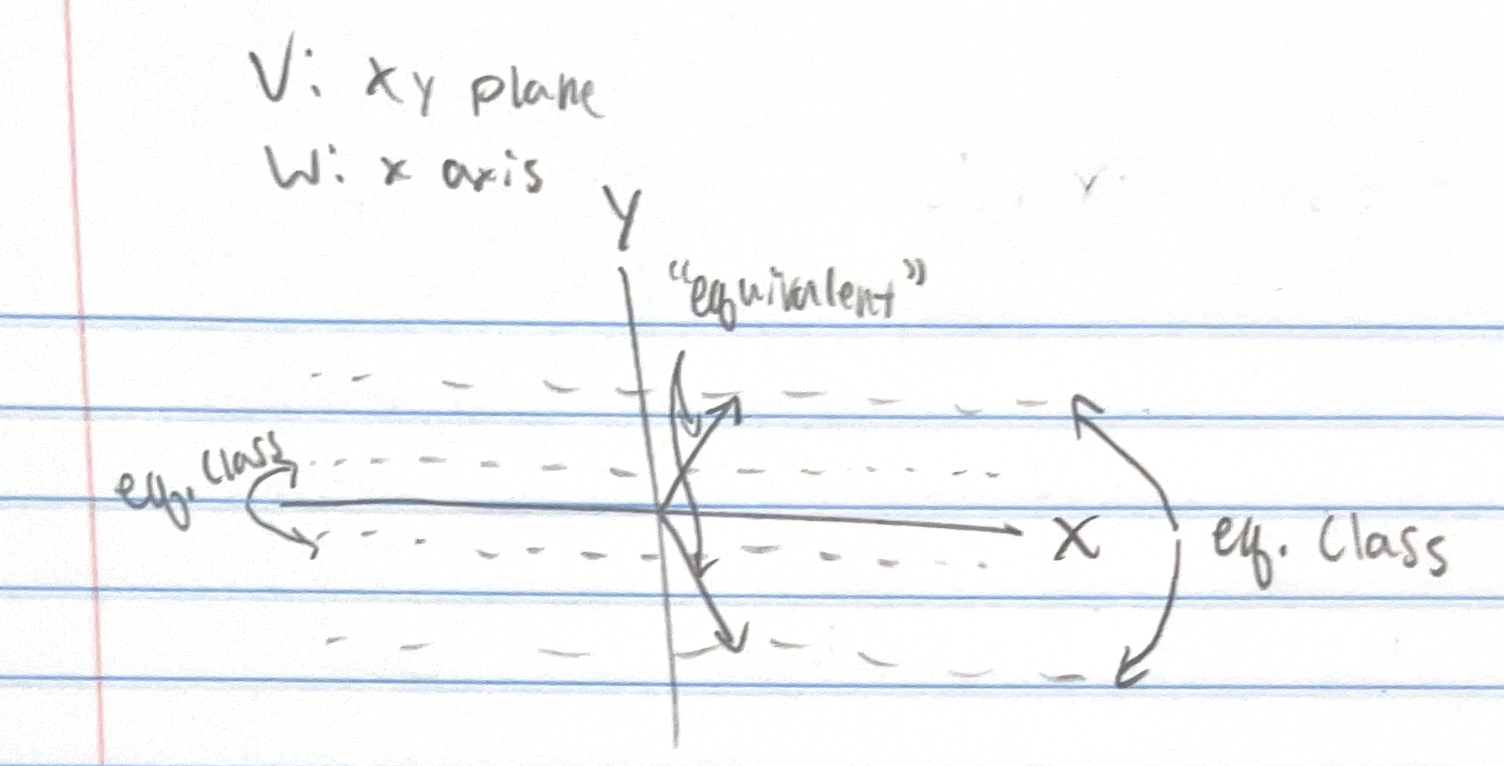 V: xy plane
W: x axis
Y
“equivalent”
eq. class
X
eq. Class